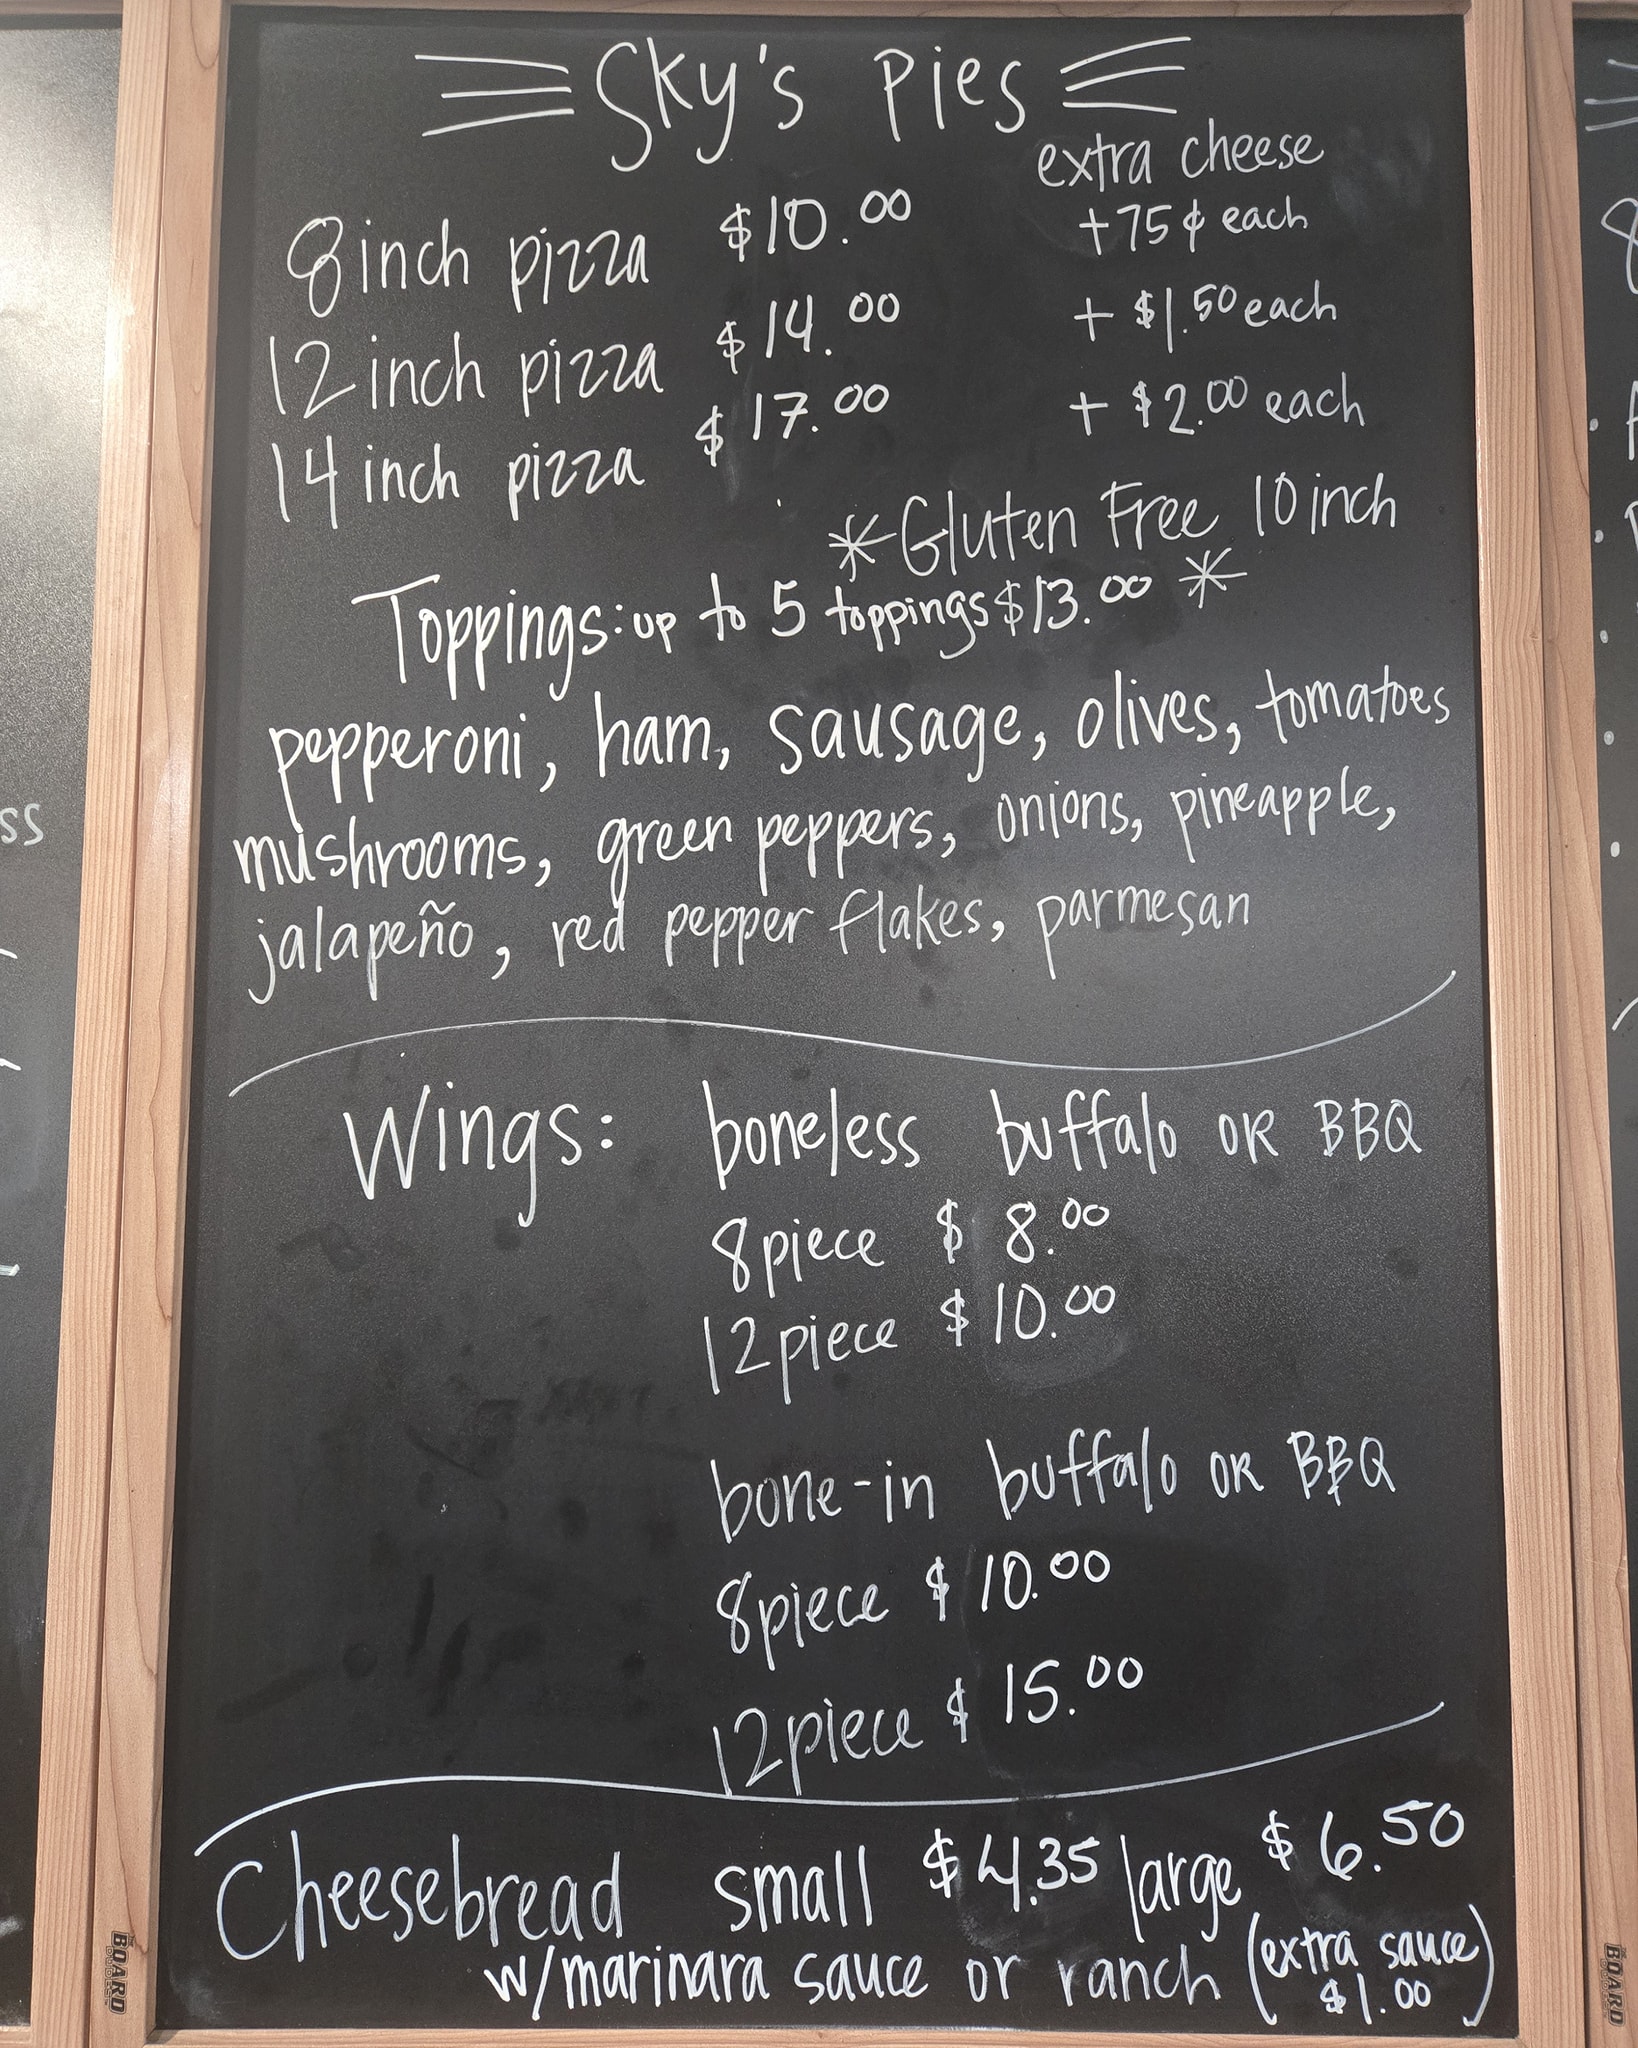 Sky's Pies
extra cheese
8 inch pizza $10.00 +75¢ each
12 inch pizza $14.00 + $1.50 each
14 inch pizza $17.00 + $2.00 each
*Gluten Free 10 inch
Toppings: up to 5 toppings $13.00 *
pepperoni, ham, sausage, olives, tomatoes
mushrooms, green peppers, onions, pineapple,
jalapeño, red pepper flakes, parmesan
Wings: boneless buffalo OR BBQ
8 piece $ 8.00
12 piece $10.00
bone-in buffalo OR BBQ
8 piece $ 10.00
12 piece $ 15.00
Cheesebread small $4.35 large $6.50
w/marinara sauce or ranch (extra sauce
$1.00)
ss
THE BOARD
THE BOARD